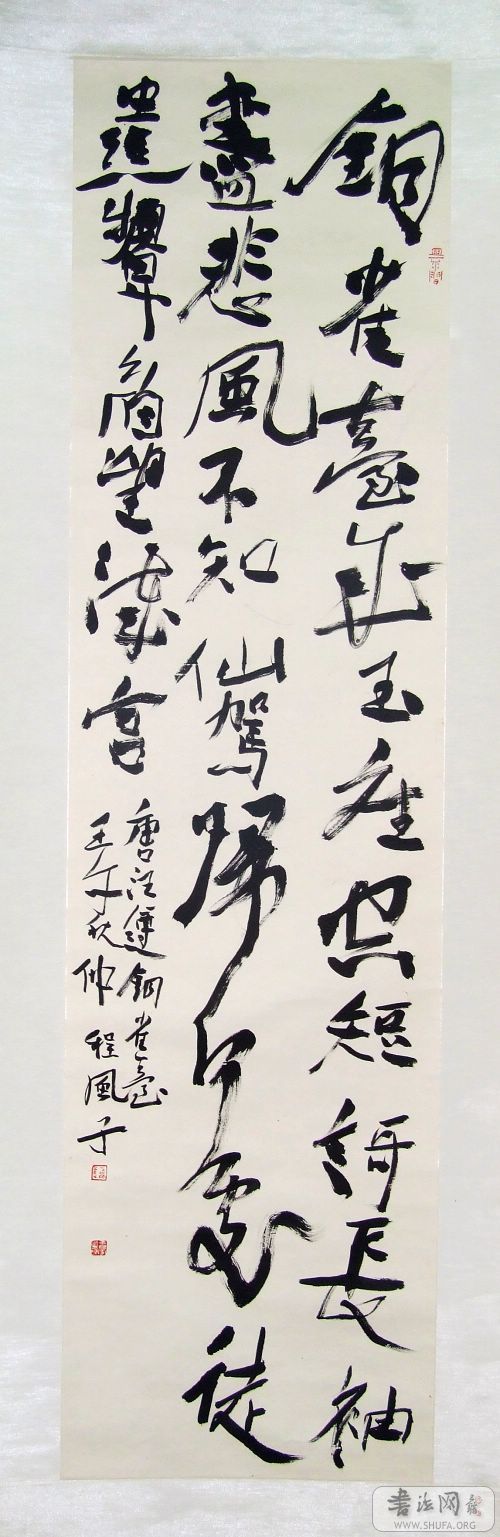 銅雀臺成玉座空短謌長袖
盡悲風不知仙駕歸何處徒
遣顰眉望漢宮
唐汪遵銅雀臺
壬午秋仲 程風子
書法网
WWW.SHUFA.ORG